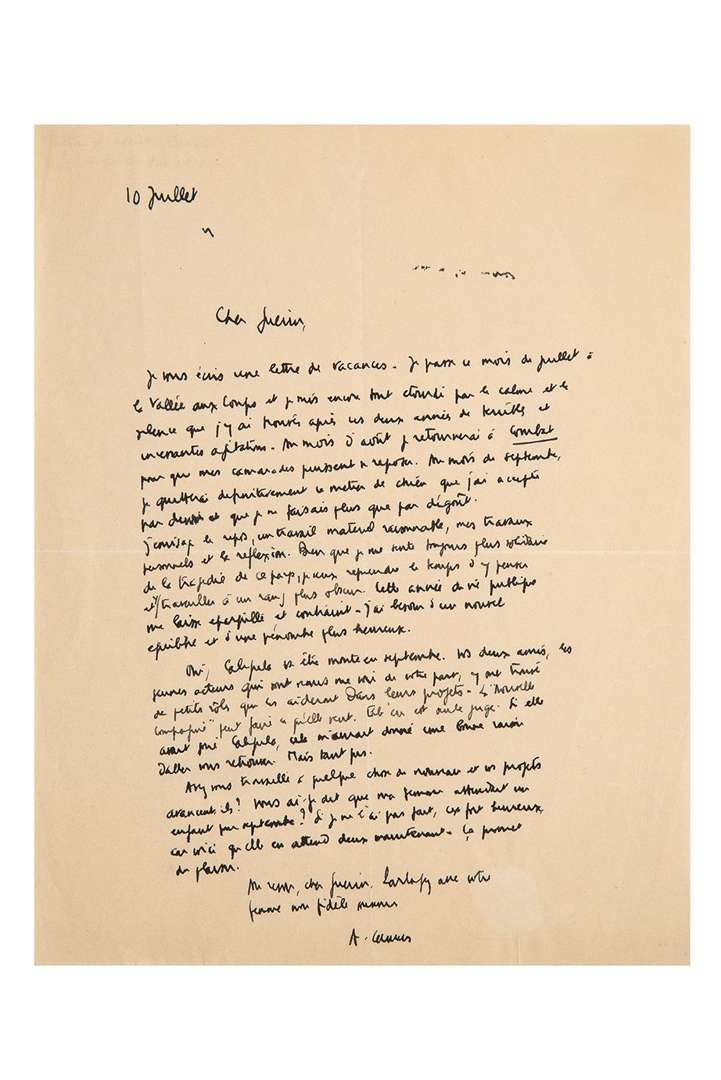 10 Juillet
Cher Guérin,
Je vous écris une lettre de vacances - Je passe ce mois de juillet à
la Vallée aux Loups et je suis encore tout étourdi par le calme et le
silence que j'y ai trouvés après ces deux années de terribles et
incessantes agitations. Au mois d'août je retournerai à Combat
pour que mes camarades puissent se reposer. Au mois de septembre,
je quitterai définitivement ce métier de chien que j'ai accepté
par devoir et que je ne faisais plus que par dégoût.
J'envisage le repos, un travail matériel raisonnable, mes travaux
personnels et la réflexion. Bien que je me sente toujours plus solidaire
de la tragédie de ce pays, je veux reprendre le temps d'y penser
et d'y travailler à un rang plus obscur. Cette année de vie publique
me laisse éparpillé et contraint - j'ai besoin d'un nouvel
équilibre et d'une pénombre plus heureuse.
Oui, Caligula va être monté en septembre. Vos deux amis, les
jeunes acteurs qui sont venus me voir de votre part, y ont trouvé
de petits rôles qui les aideront dans leurs projets - La "Nouvelle
Compagnie" peut faire ce qu'elle veut. Elle en est seule juge. Si elle
avait joué Caligula, cela m'aurait donné une bonne raison
d'aller vous retrouver. Mais tant pis.
Avez vous travaillé à quelque chose de nouveau et vos projets
avancent ils? Vous ai-je dit que ma femme attendait un
enfant pour septembre? Si je ne l'ai pas fait, c'est fort heureux,
car voici qu'elle en attend deux maintenant - Ça promet
du plaisir.
Au revoir, cher Guérin. Partagez avec votre
femme mon fidèle souvenir
A. Camus